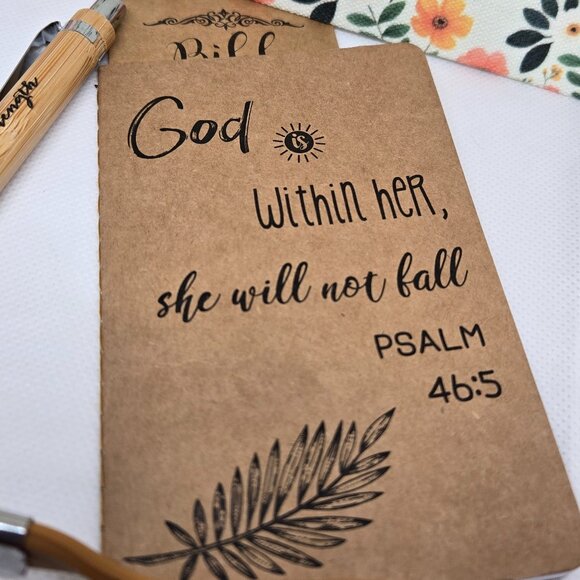 God is
within her,
she will not fall
PSALM
46:5